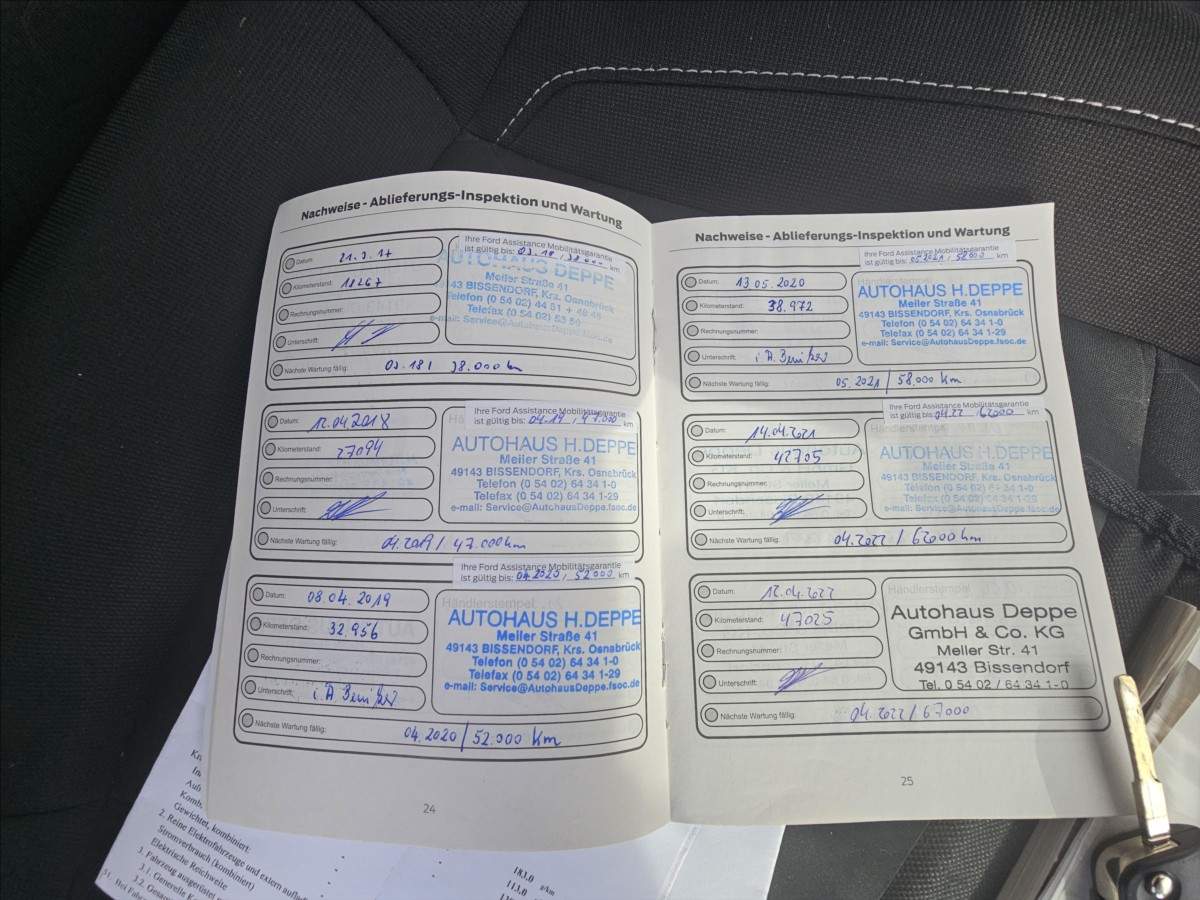 Nachweise - Ablieferungs-Inspektion und Wartung
Ihre Ford Assistance Mobilitätsgarantie
ist gültig bis: 03.18, 38.000 km
Datum: 21.3.17
Kilometerstand: 11267
Rechnungsnummer:
Unterschrift:
AUTOHAUS DEPPE
Meller Straße 41
49143 BISSENDORF, Krs. Osnabrück
Telefon (0 54 02)
Telefax (0 54 02)
e-mail: Service@AutohausDeppe.fsoc.de
Nächste Wartung fällig: 03.18 / 38.000 km
Ihre Ford Assistance Mobilitätsgarantie
ist gültig bis: 04.19, 47.000 km
Datum: 12.04.2018
Kilometerstand: 27094
Rechnungsnummer:
Unterschrift:
AUTOHAUS H.DEPPE
Meller Straße 41
49143 BISSENDORF, Krs. Osnabrück
Telefon (0 54 02) 64 34 1-0
Telefax (0 54 02) 64 34 1-29
e-mail: Service@AutohausDeppe.fsoc.de
Nächste Wartung fällig: 04.2019 / 47.000 km
Ihre Ford Assistance Mobilitätsgarantie
ist gültig bis: 04.2020, 52.000 km
Datum: 08.04.2019
Kilometerstand: 32.956
Rechnungsnummer:
Unterschrift: i.A.
Händlerstempel
AUTOHAUS H.DEPPE
Meller Straße 41
49143 BISSENDORF, Krs. Osnabrück
Telefon (0 54 02) 64 34 1-0
Telefax (0 54 02) 64 34 1-29
e-mail: Service@AutohausDeppe.fsoc.de
Nächste Wartung fällig: 04.2020 / 52.000 Km
24
Nachweise - Ablieferungs-Inspektion und Wartung
Ihre Ford Assistance Mobilitätsgarantie
ist gültig bis: 05.2021, 58.000 km
Datum: 13.05.2020
Kilometerstand: 38.972
Rechnungsnummer:
Unterschrift: i.A.
AUTOHAUS H.DEPPE
Meller Straße 41
49143 BISSENDORF, Krs. Osnabrück
Telefon (0 54 02) 64 34 1-0
Telefax (0 54 02) 64 34 1-29
e-mail: Service@AutohausDeppe.fsoc.de
Nächste Wartung fällig: 05.2021 / 58.000 Km
Ihre Ford Assistance Mobilitätsgarantie
ist gültig bis: 04.22, 62000 km
Datum: 14.04.2021
Kilometerstand: 42705
Rechnungsnummer:
Unterschrift:
Händlerstempel
AUTOHAUS H.DEPPE
Meller Straße 41
49143 BISSENDORF, Krs. Osnabrück
Telefon (0 54 02) 64 34 1-0
Telefax (0 54 02) 64 34 1-29
e-mail: Service@AutohausDeppe.fsoc.de
Nächste Wartung fällig: 04.2022 / 62000 km
Datum: 12.04.2022
Kilometerstand: 47025
Rechnungsnummer:
Unterschrift:
Händlerstempel
Autohaus Deppe
GmbH & Co. KG
Meller Str. 41
49143 Bissendorf
Tel. 0 54 02 / 64 34 1-0
Nächste Wartung fällig: 04.2022 / 67000
25
Gewichtet, kombiniert:
2. Reine Elektrofahrzeuge und extern
Stromverbrauch (kombiniert)
Elektrische Reichweite
3. Fahrzeug ausgerüstet
3.1. Generelle
3.2.
183.0 g/km
113.0